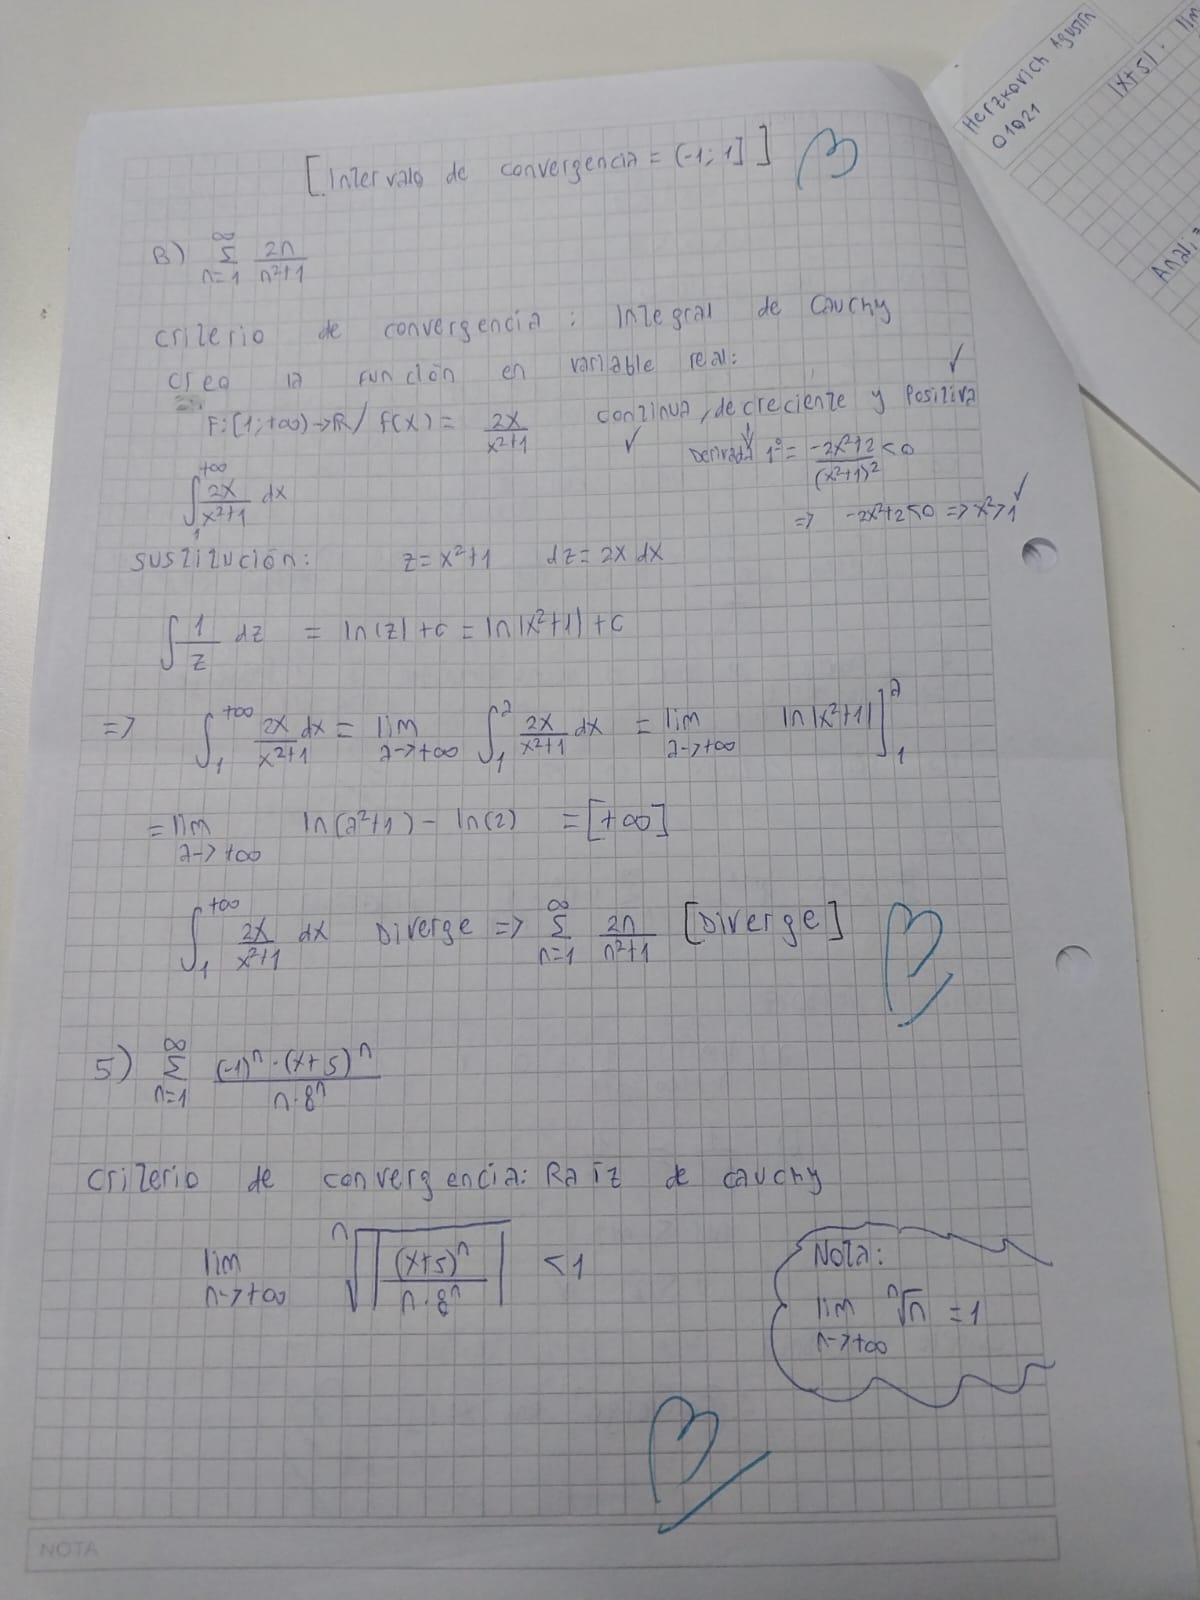 [Intervalo de convergencia = (-1; 1]] B
B) ∞ Σ n=1 2n/n²+1
criterio de convergencia: Integral de Cauchy
creo la función en variable real:
F: [1; +∞) → R / f(x) = 2x/x²+1 continua, decreciente y positiva ✓
✓ Derivada 1° = -2x²+2/(x²+1)² < 0
∫₁^+∞ 2x/x²+1 dx => -2x²+2<0 => x²>1 ✓
sustitución: z = x²+1 dz = 2x dx
∫ 1/z dz = ln|z| + c = ln|x²+1| + c
=> ∫₁^+∞ 2x/x²+1 dx = lim a→+∞ ∫₁^a 2x/x²+1 dx = lim a→+∞ ln|x²+1| ]₁^a
= lim a→+∞ ln(a²+1) - ln(2) = [+∞]
∫₁^+∞ 2x/x²+1 dx Diverge => ∞ Σ n=1 2n/n²+1 [Diverge] B
5) ∞ Σ n=1 (-1)ⁿ · (x+5)ⁿ/n·8ⁿ
criterio de convergencia: Raíz de cauchy
lim n→+∞ ⁿ√|(x+5)ⁿ/n·8ⁿ| < 1
Nota:
lim n→+∞ ⁿ√n = 1
B
NOTA
Herzkovich Agustín
|x+5| · lim